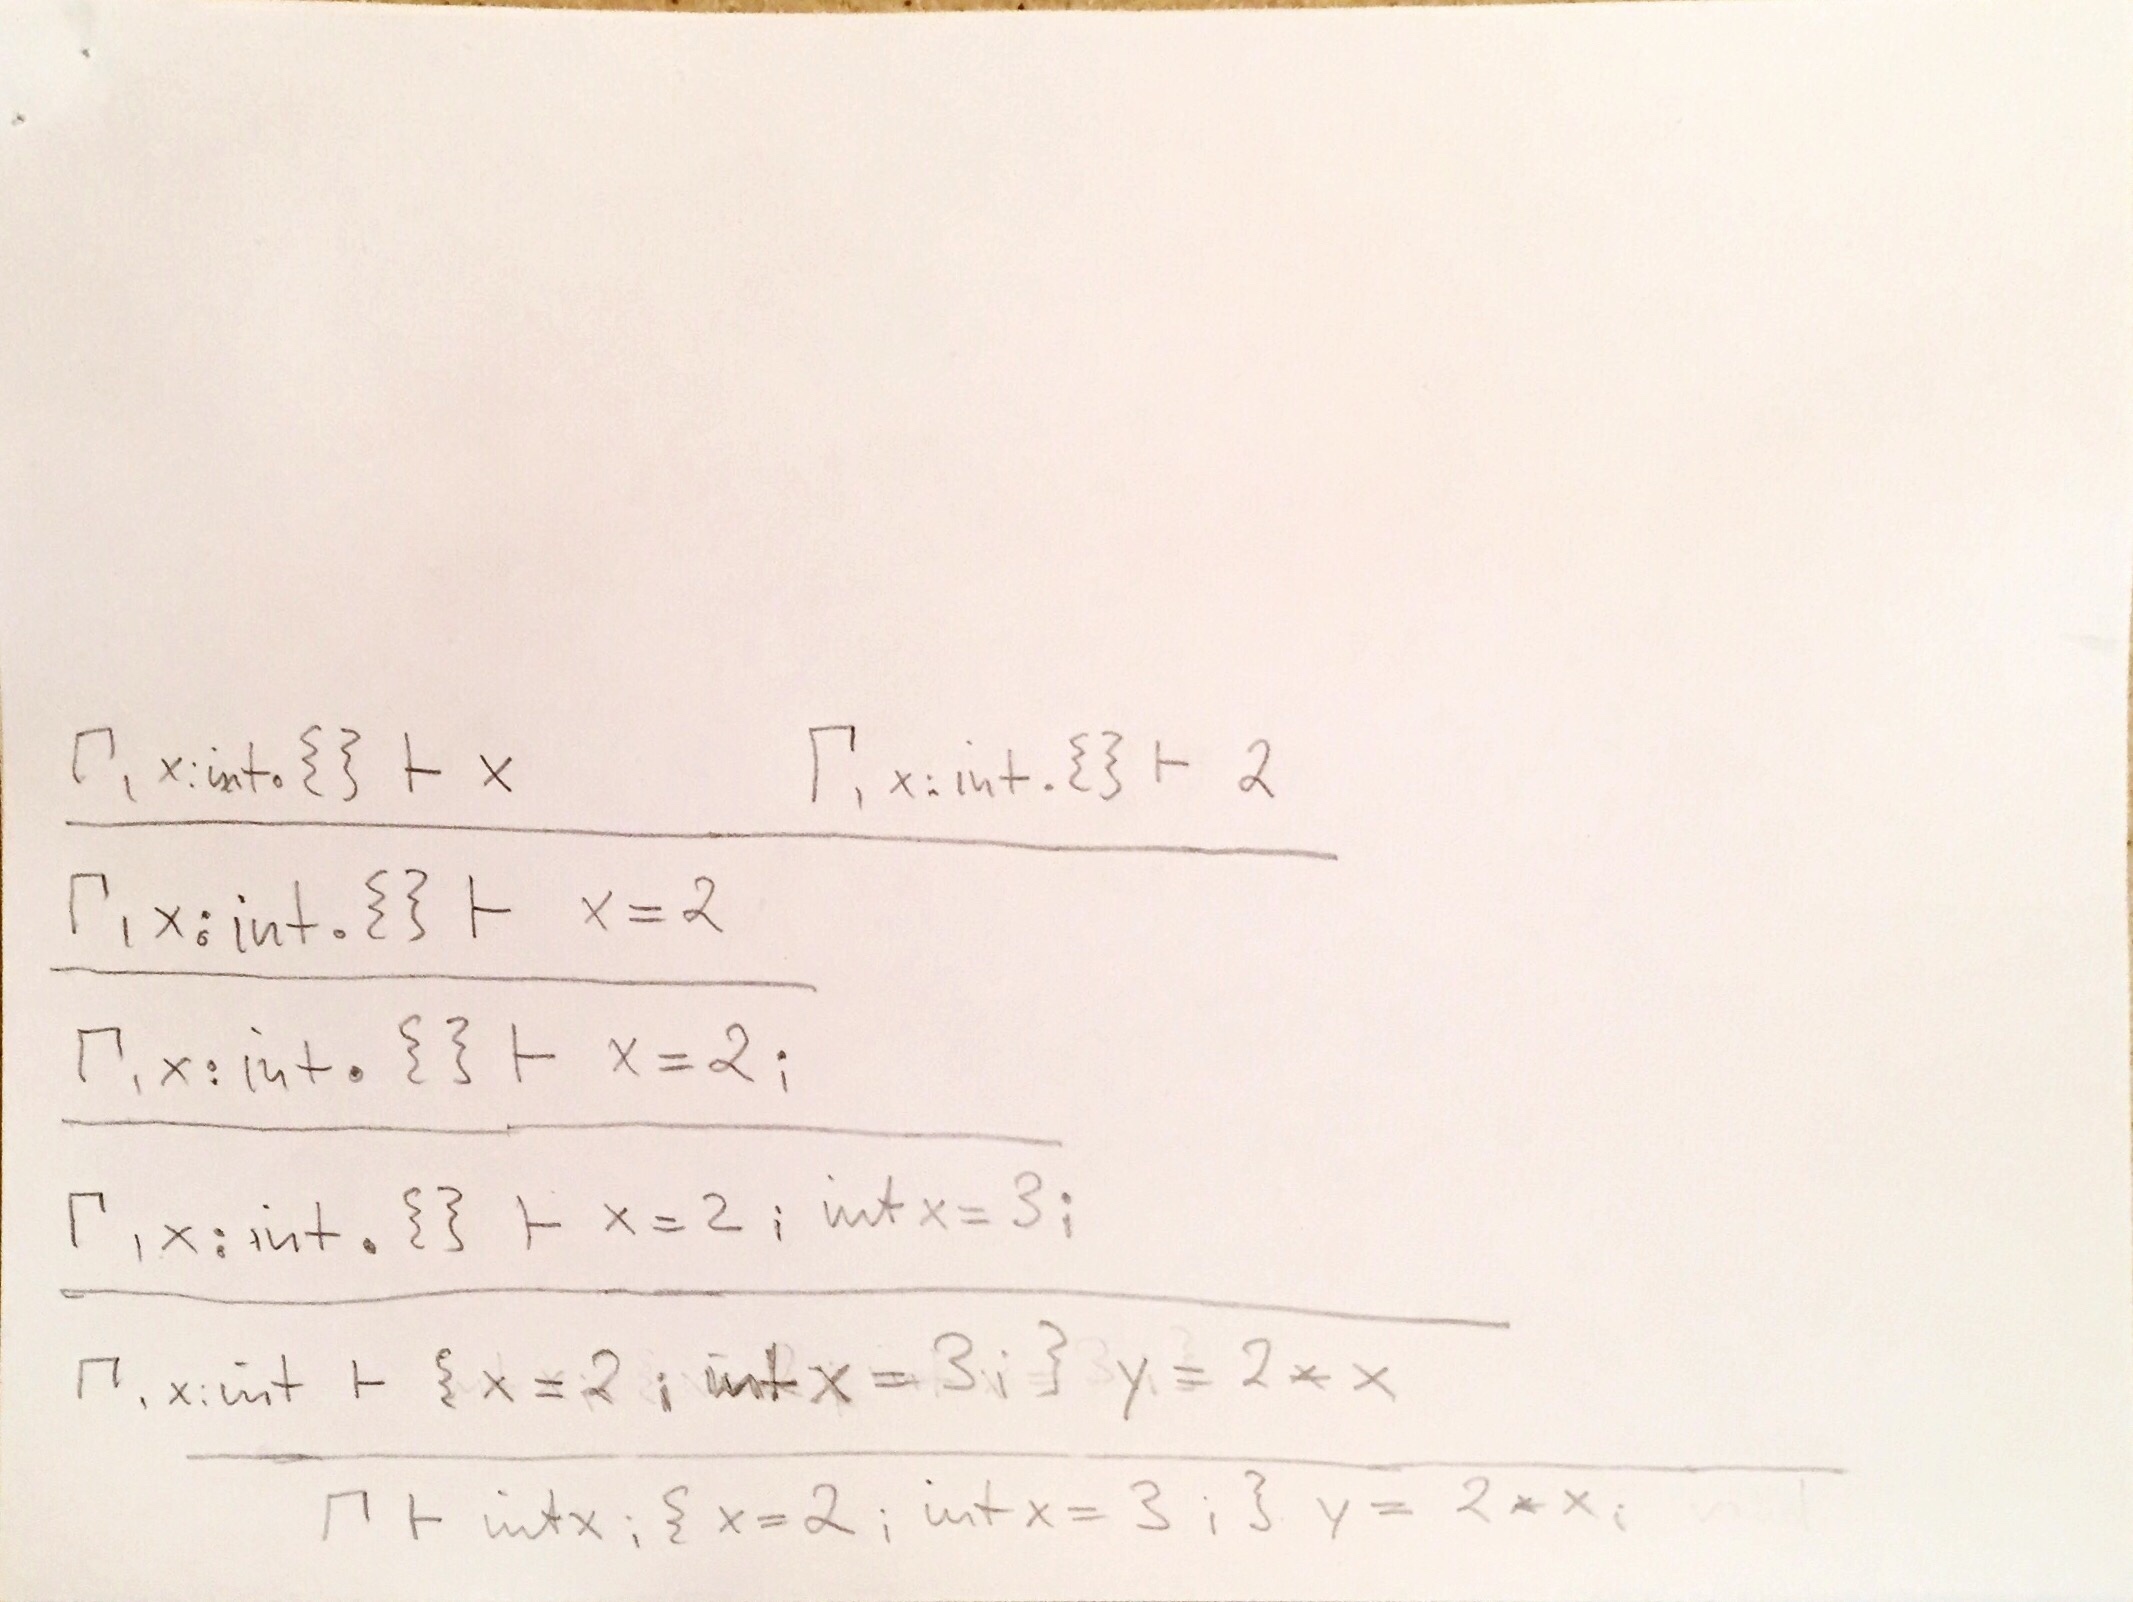 Γ, x:int.{} ⊢ x Γ, x:int.{} ⊢ 2
Γ, x:int.{} ⊢ x=2
Γ, x:int.{} ⊢ x=2;
Γ, x:int.{} ⊢ x=2; int x=3;
Γ, x:int ⊢ {x=2; int x=3;} y=2*x
Γ ⊢ int x; {x=2; int x=3;} y=2*x;